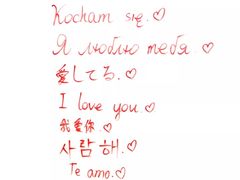 Kocham się.♡
Я люблю тебя ♡
愛してる.♡
I love you.♡
我愛你.♡
사람해.♡
Te amo.♡